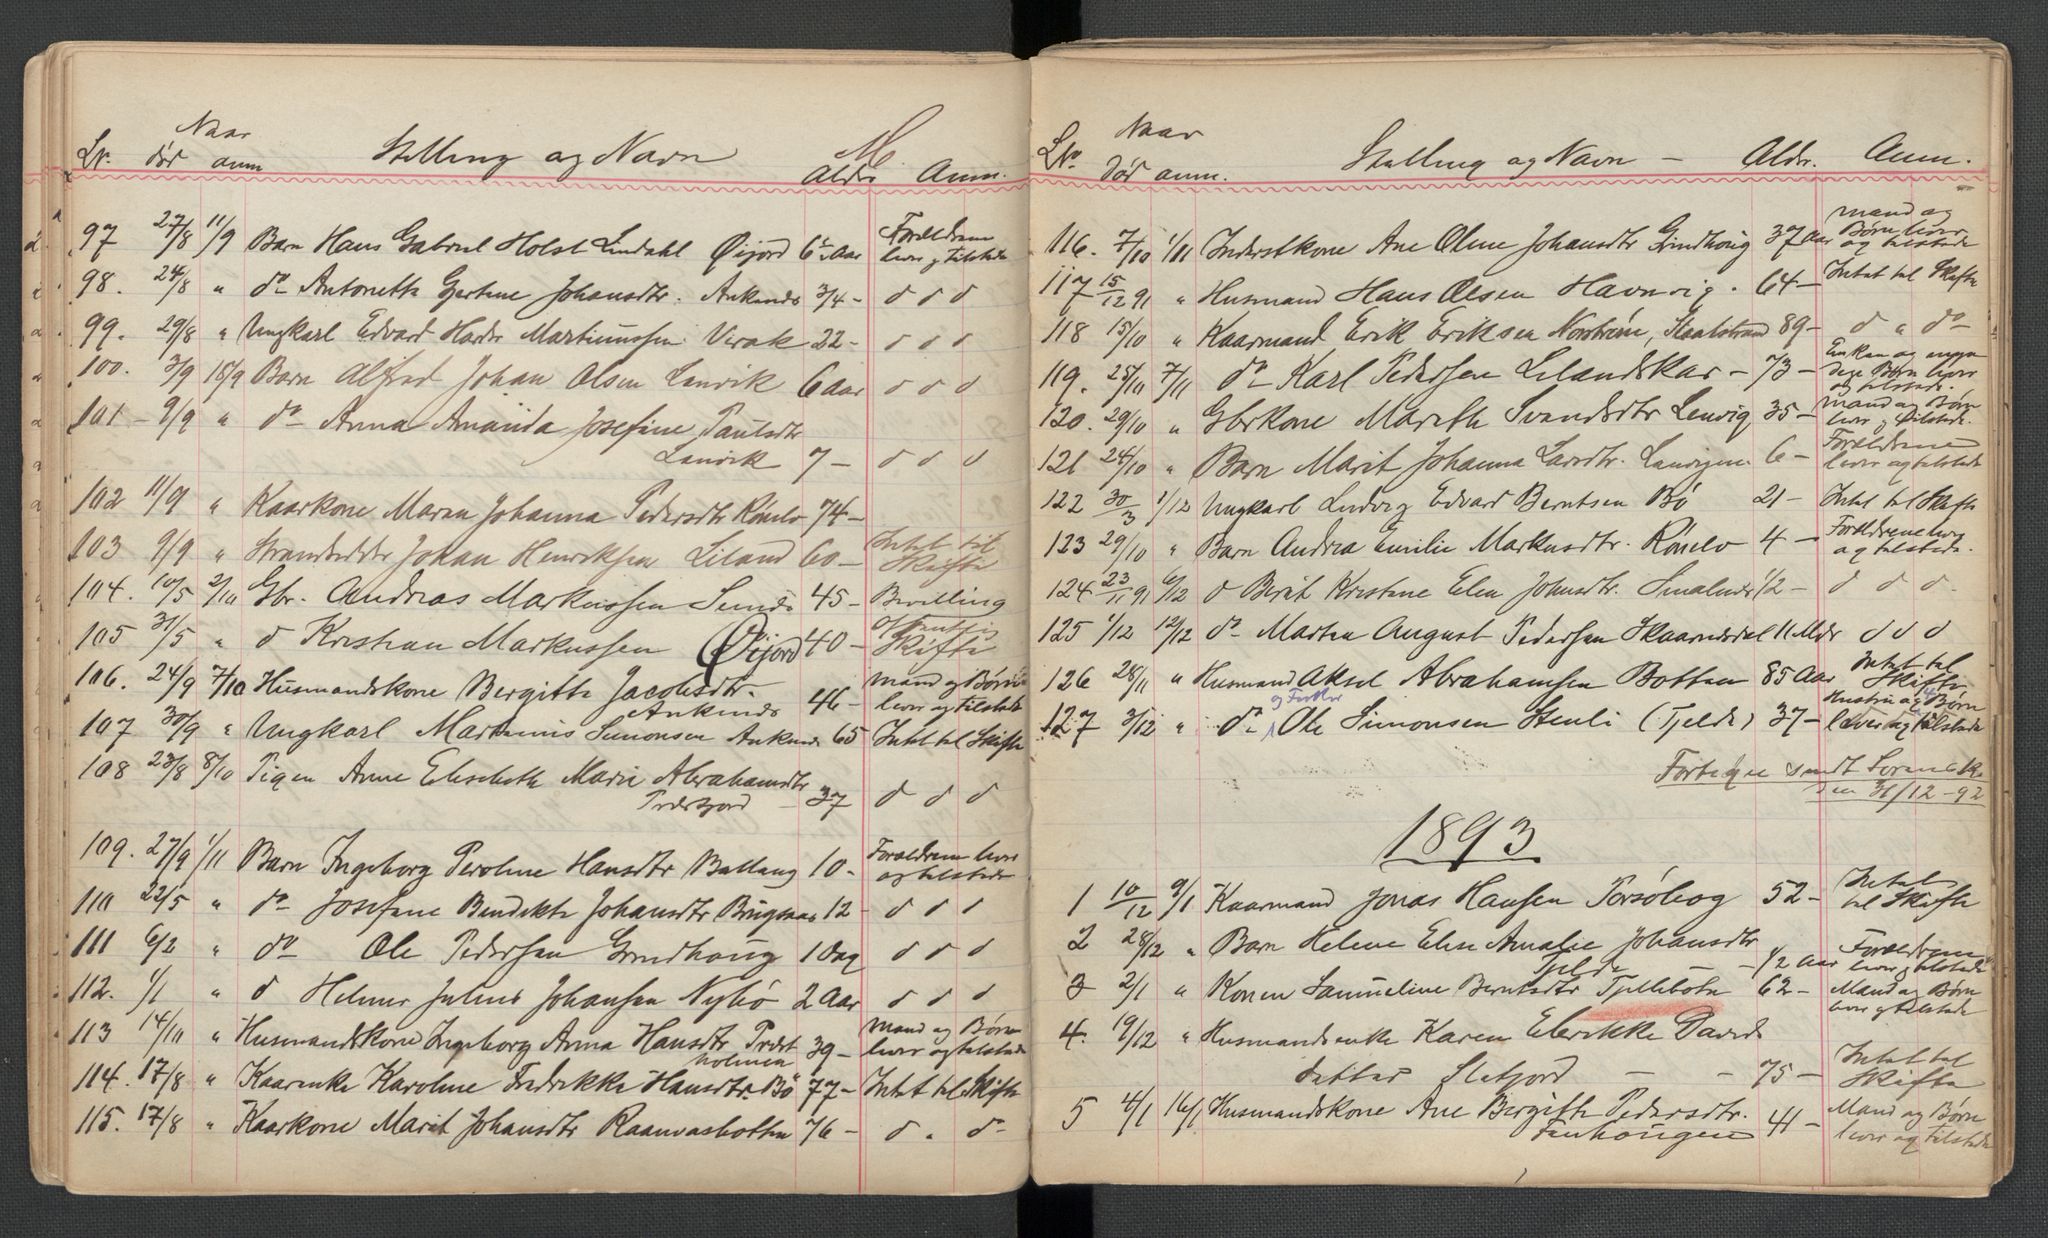 Naar
Lr. død anm Stilling og Navn Alder Anm.
97 27/8 11/9 Barn Hans Gabriel Holst Lindahl Øijord 6 Aar Forældrene
lever og tilstede
98. 24/8 " do Antonette Gjertine Johansdtr. Ankenes 3/4 - d d d
99. 29/8 " Ungkarl Edvard Martinussen Virak 22 - d d d
100. 3/9 15/9 Barn Alfred Johan Olsen Lanvik 6 Aar d d d
101 - 9/9 " do Anna Amanda Josefine Paulsdtr
Lanvik 7 - d d d
102 11/9 " Kaarkone Maren Johanna Pedersdtr Rønelv 74 -
103 9/9 " Strandsidder Johan Henriksen Liland 60 - Intet til
Skifte
104. 10/5 2/10 Gbr. Andreas Markussen 45 - Bevilling
105 31/5 " d Kristian Markussen Øijord 40 - offentlig
Skifte
106. 24/9 7/10 Husmandskone Bergitte Jacobsdtr.
Ankenes 46 - Mand og Børn
lever og tilstede
107 30/9 " Ungkarl Martinus Simonsen Ankenes 65 Intet til Skifte
108 23/8 8/10 Pigen Anne Elisabeth Marie Abrahamsdtr
Præstjord - 37 d d d
109. 27/9 1/11 Barn Ingeborg Peroline Hansdtr Ballang 10 - Forældrene lever
og tilstede
110 22/5 " do Josefine Bendikte Johansdtr 12 - d d d
111 6/2 " do Ole Pedersen Grindhoug 1 Dag d d d
112. 1/1 " d Helmer Julius Johansen Nybø 2 Aar d d d
113 14/10 " Husmandskone Ingeborg Anna Hansdtr Præst
holmen 39 - Mand og Børn
lever og tilstede
114. 17/8 " Kaarenke Karoline Fredrikke Hansdtr. Bø 77 - Intet til Skifte
115. 17/8 " Kaarkone Marit Johansdtr Raanvasbotten 76 - d " do
Naar
Lr. død anm. Stilling og Navn - Aldr. Anm.
116. 7/10 1/11 Inderstkone Ane Oline Johansdtr Grindhoug 37 Aar Mand og
Børn lever
og tilstede
117 15/12 91 " Husmand Hans Olsen Havnvig. 64 - Intet til Skifte
118 15/10 " Kaarmand Erik Eriksen Nordstrøm, 89 - d " do
119. 25/10 7/11 do Karl Pedersen Lilandskar - 73 - Enken og myn
dige Børn lever
og tilstede.
120. 29/10 " Gbrkone Marith Svendsdtr Lenvig 35 - Mand og Børn
lever og tilstede.
121 24/10 " Barn Marit Johanna Larsdtr. Lanvigen 6 - Forældrene
lever og tilstede
122 30/3 1/12 Ungkarl Ludvig Edvard Berntsen Bø 21 - Intet til Skifte
123 29/10 " Barn Andrea Emilie Markusdtr. Rønelv 4 - Forældrene lever
og tilstede.
124 23/11 91 6/12 d Berit Kristine Elen Johnsdtr. 1/2 - d d d
125 1/12 12/12 do Marten August Pedersen Skaarnesdal 11 Mdr d d d
126 28/11 " Husmand Aksel Abrahamsen Botten 85 Aar Intet til
Skifte
og Fisker
127 3/12 " do Ole Simonsen Stenli (Tjelde) 37 - Hustru og 4 Børn
lever og tilstede
Fortegne sendt Sorensk.
den 31/12 - 92
1893
1 10/12 9/1 Kaarmand Jonas Hansen Forsøbog 52 - Intet
til Skifte
2 28/12 " Barn Helene Elise Amalie Johansdtr
Tjelde - 1/2 Aar Forældrene
lever og tilstede
3 2/1 " Konen Samueline Berntsdtr Tjellebotn 62 - Mand og Børn
lever og tilstede
4. 19/12 " Husmandsenke Karen Elerikke Davids
datter Slefjord - - 75 - Intet til
Skifte
5 4/1 16/1 Husmandskone Ane Bergitte Pedersdtr.
Fenhougen 41 - Mand og Børn
lever og tilstede